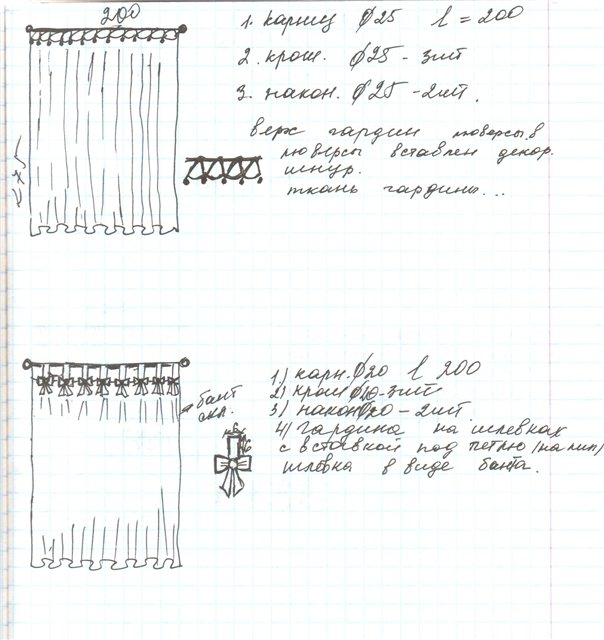 200
1. карниз ϕ25 l = 200
2. крош. ϕ25 - 3шт
3. након. ϕ25 - 2шт.
верх гардин люверсы. в
люверсы вставлен декор.
шнур.
ткань гардины...
1) карн. ϕ20 l 200
2) крош ϕ20 - 3шт
3) након ϕ20 - 2шт
4) гардина на шлевках
с вставкой под петлю (на лип)
шлевка в виде банта.
бант